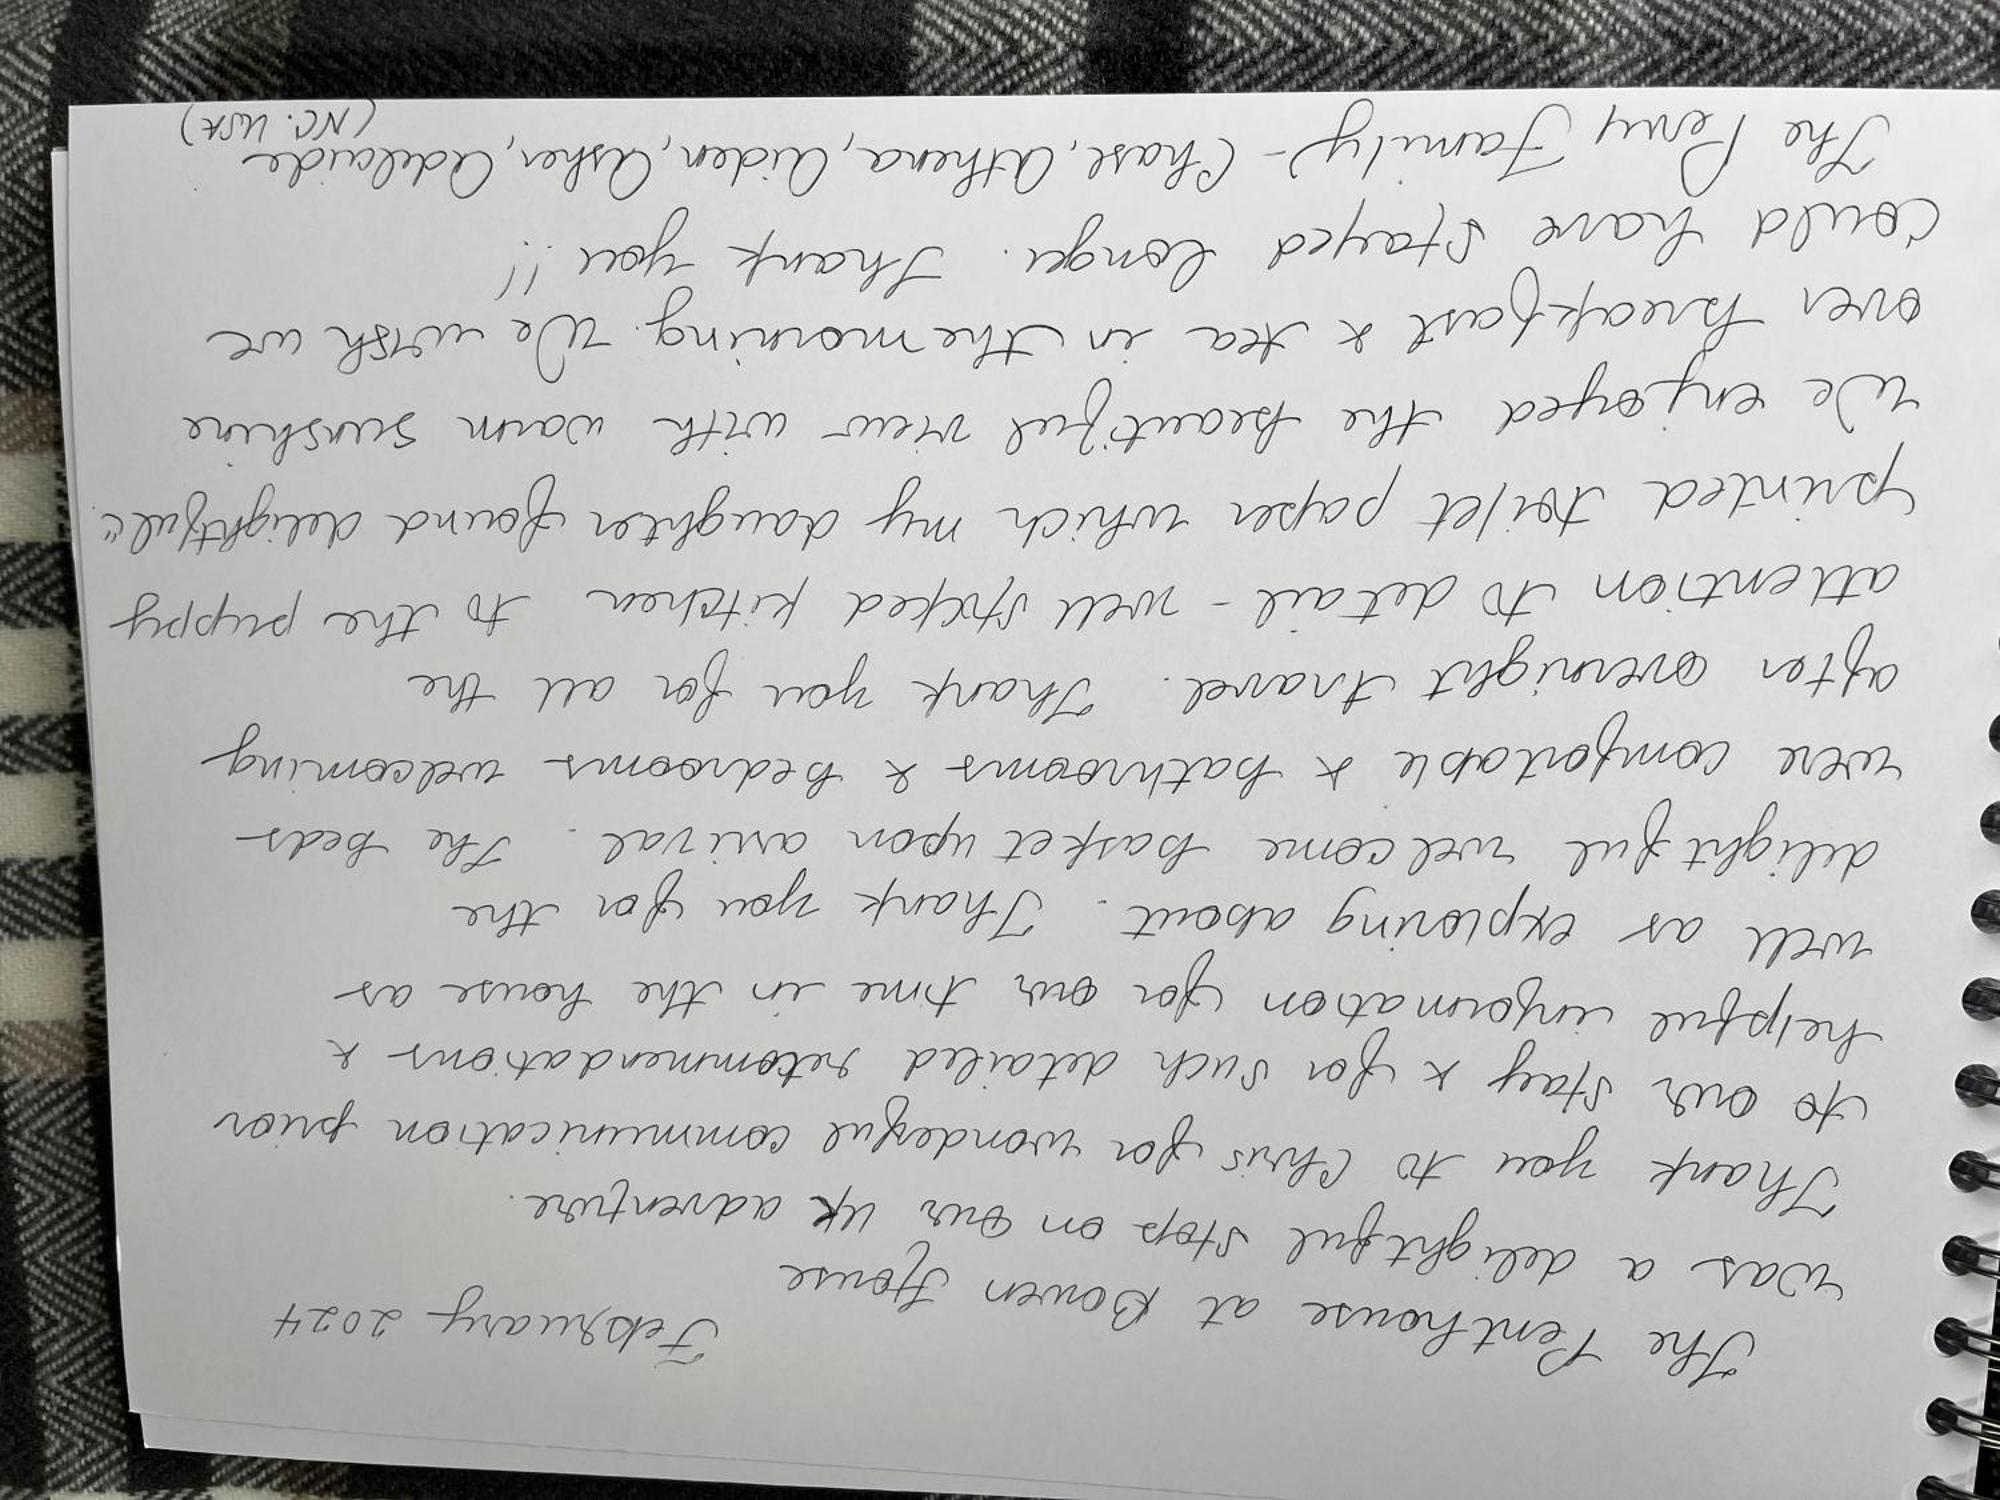 February 2024
The Penthouse at Bowen House
was a delightful stop on our UK adventure.
Thank you to Chris for wonderful communication prior
to our stay & for such detailed recommendations &
helpful information for our time in the house as
well as exploring about. Thank you for the
delightful welcome basket upon arrival. The beds
were comfortable & bathrooms & bedrooms welcoming
after overnight travel. Thank you for all the
attention to detail - well stocked kitchen to the puppy
printed toilet paper which my daughter found delightful."
We enjoyed the beautiful view with warm sunshine
over breakfast & tea in the morning. We wish we
could have stayed longer. Thank you!!
The Perry Family - Chase, Athena, Aiden, Asher, Adelaide
(NC. USA)